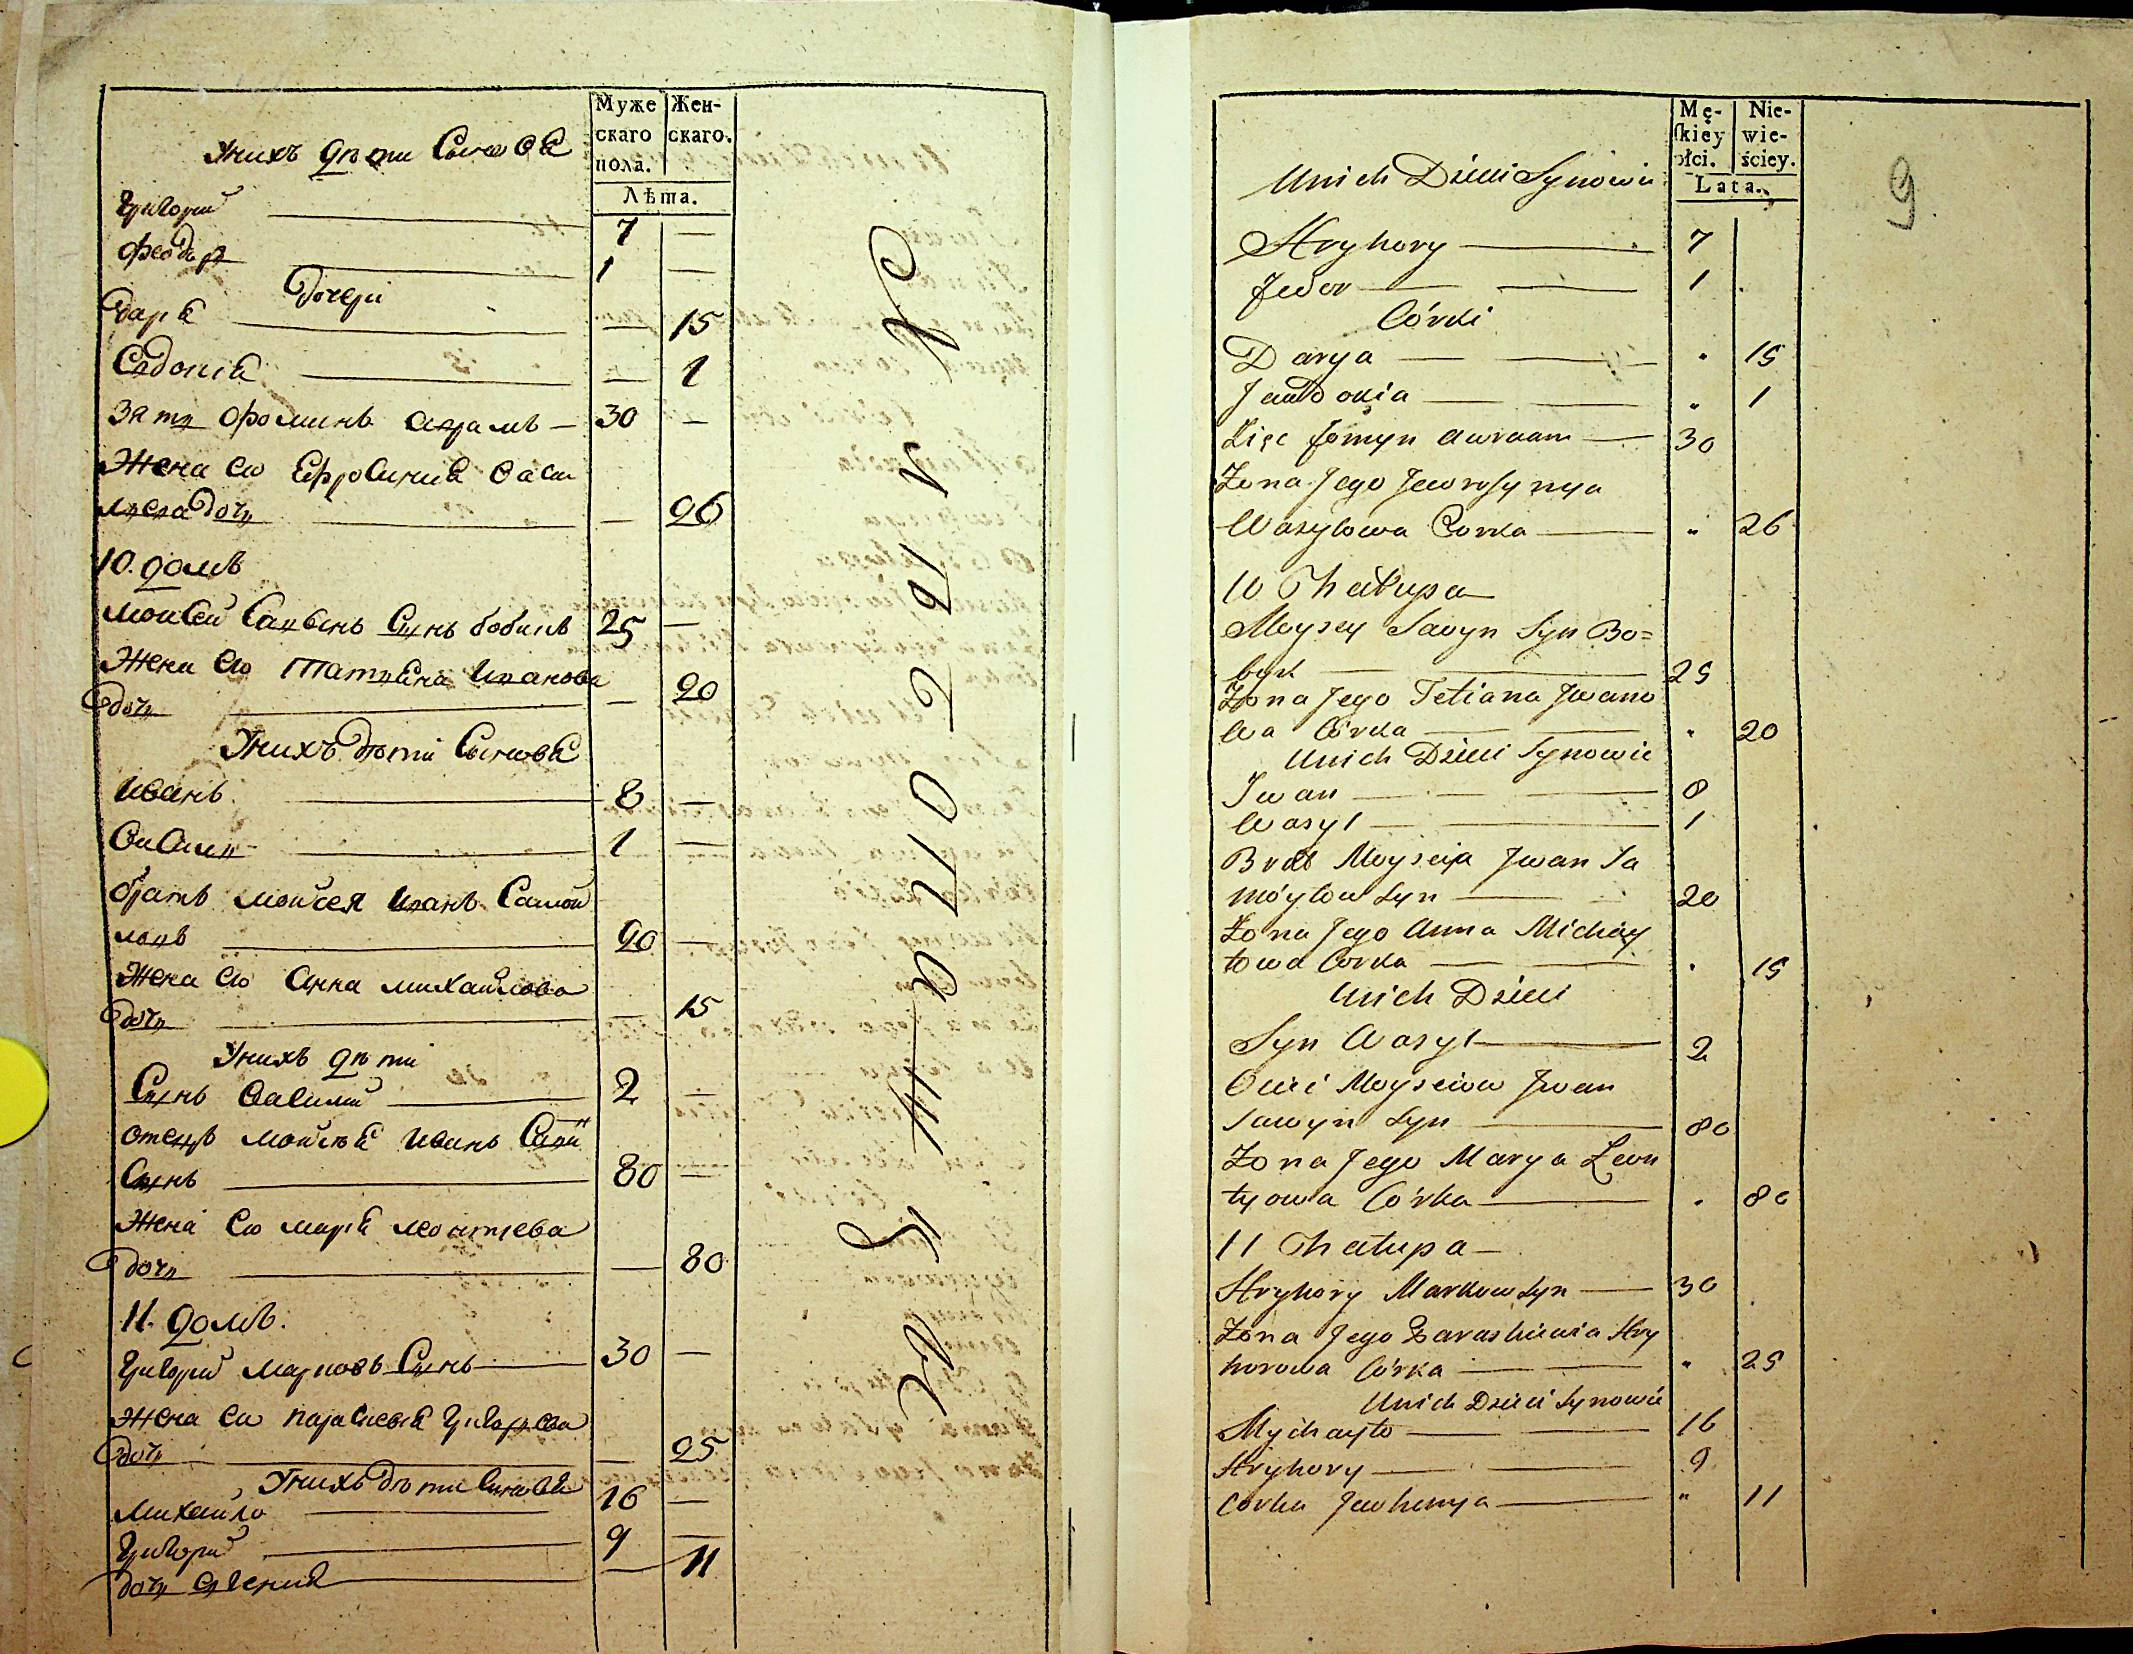 Муже
скаго
пола.
Жен-
скаго.
Лѣта.
Унихъ дѣти Сынове
Григорий 7 —
Феодор 1 —
Дочери
Дарѣ — 15
— 1
Зять Фоминъ 30 —
Жена Его Ефросиния Васи
лева дочь — 26
10. домъ
Моисей Савинъ Сынъ бобиль 25 —
Жена Его Татиена Иванова
дочь — 20
Унихъ дѣти Сынове
Иванъ 8 —
Василь 1 —
братъ Мойсея Иванъ Самой
ловъ 20 —
Жена Его Анна Михайлова
дочь — 15
Унихъ дѣти
Сынъ Василий 2 —
отецъ Мойсея Иванъ Савин
Сынъ 80 —
Жена Его Марѣ Леонтиева
дочь — 80
11. домъ.
Григорий Марковъ Сынъ 30 —
Жена Его Парасковѣ Григорева
дочь — 25
Унихъ дѣти Синовѣ
Михайло 16 —
Григорий 9 —
дочь — 11
Mę-
skiey
płci.
Nie-
wie-
ściey.
Lata.
9
Unich Dzieci Synowie
Hryhory 7
Fedor 1
Córki
Darya " 15
Jewdokia " 1
Zięc Fomyn Awraam 30
Żona Jego Jewrosynya
Wasylowa Corka " 26
10 Chałupa
Moysey Sawyn Syn Bo=
byl 25
Żona Jego Tetiana Jwano
wa Córka " 20
Unich Dzieci Synowie
Jwan 8
Wasyl 1
Brat Moyseja Jwan Sa
móyłow Syn 20
Żona Jego Anna Michay
łowa Corka " 15
Unich Dzieci
Syn Wasyl 2
Ociec Moyseiow Jwan
Sawyn Syn 80
Żona Jego Marya Leon
tyowa Córka " 80
11 Chałupa
Hryhory Markow Syn 30
Żona Jego Paraskiewia Hry
horowa Córka " 25
Unich Dzieci Synowie
Mychayło 16
Hryhory 9
Corka Jewhenya " 11